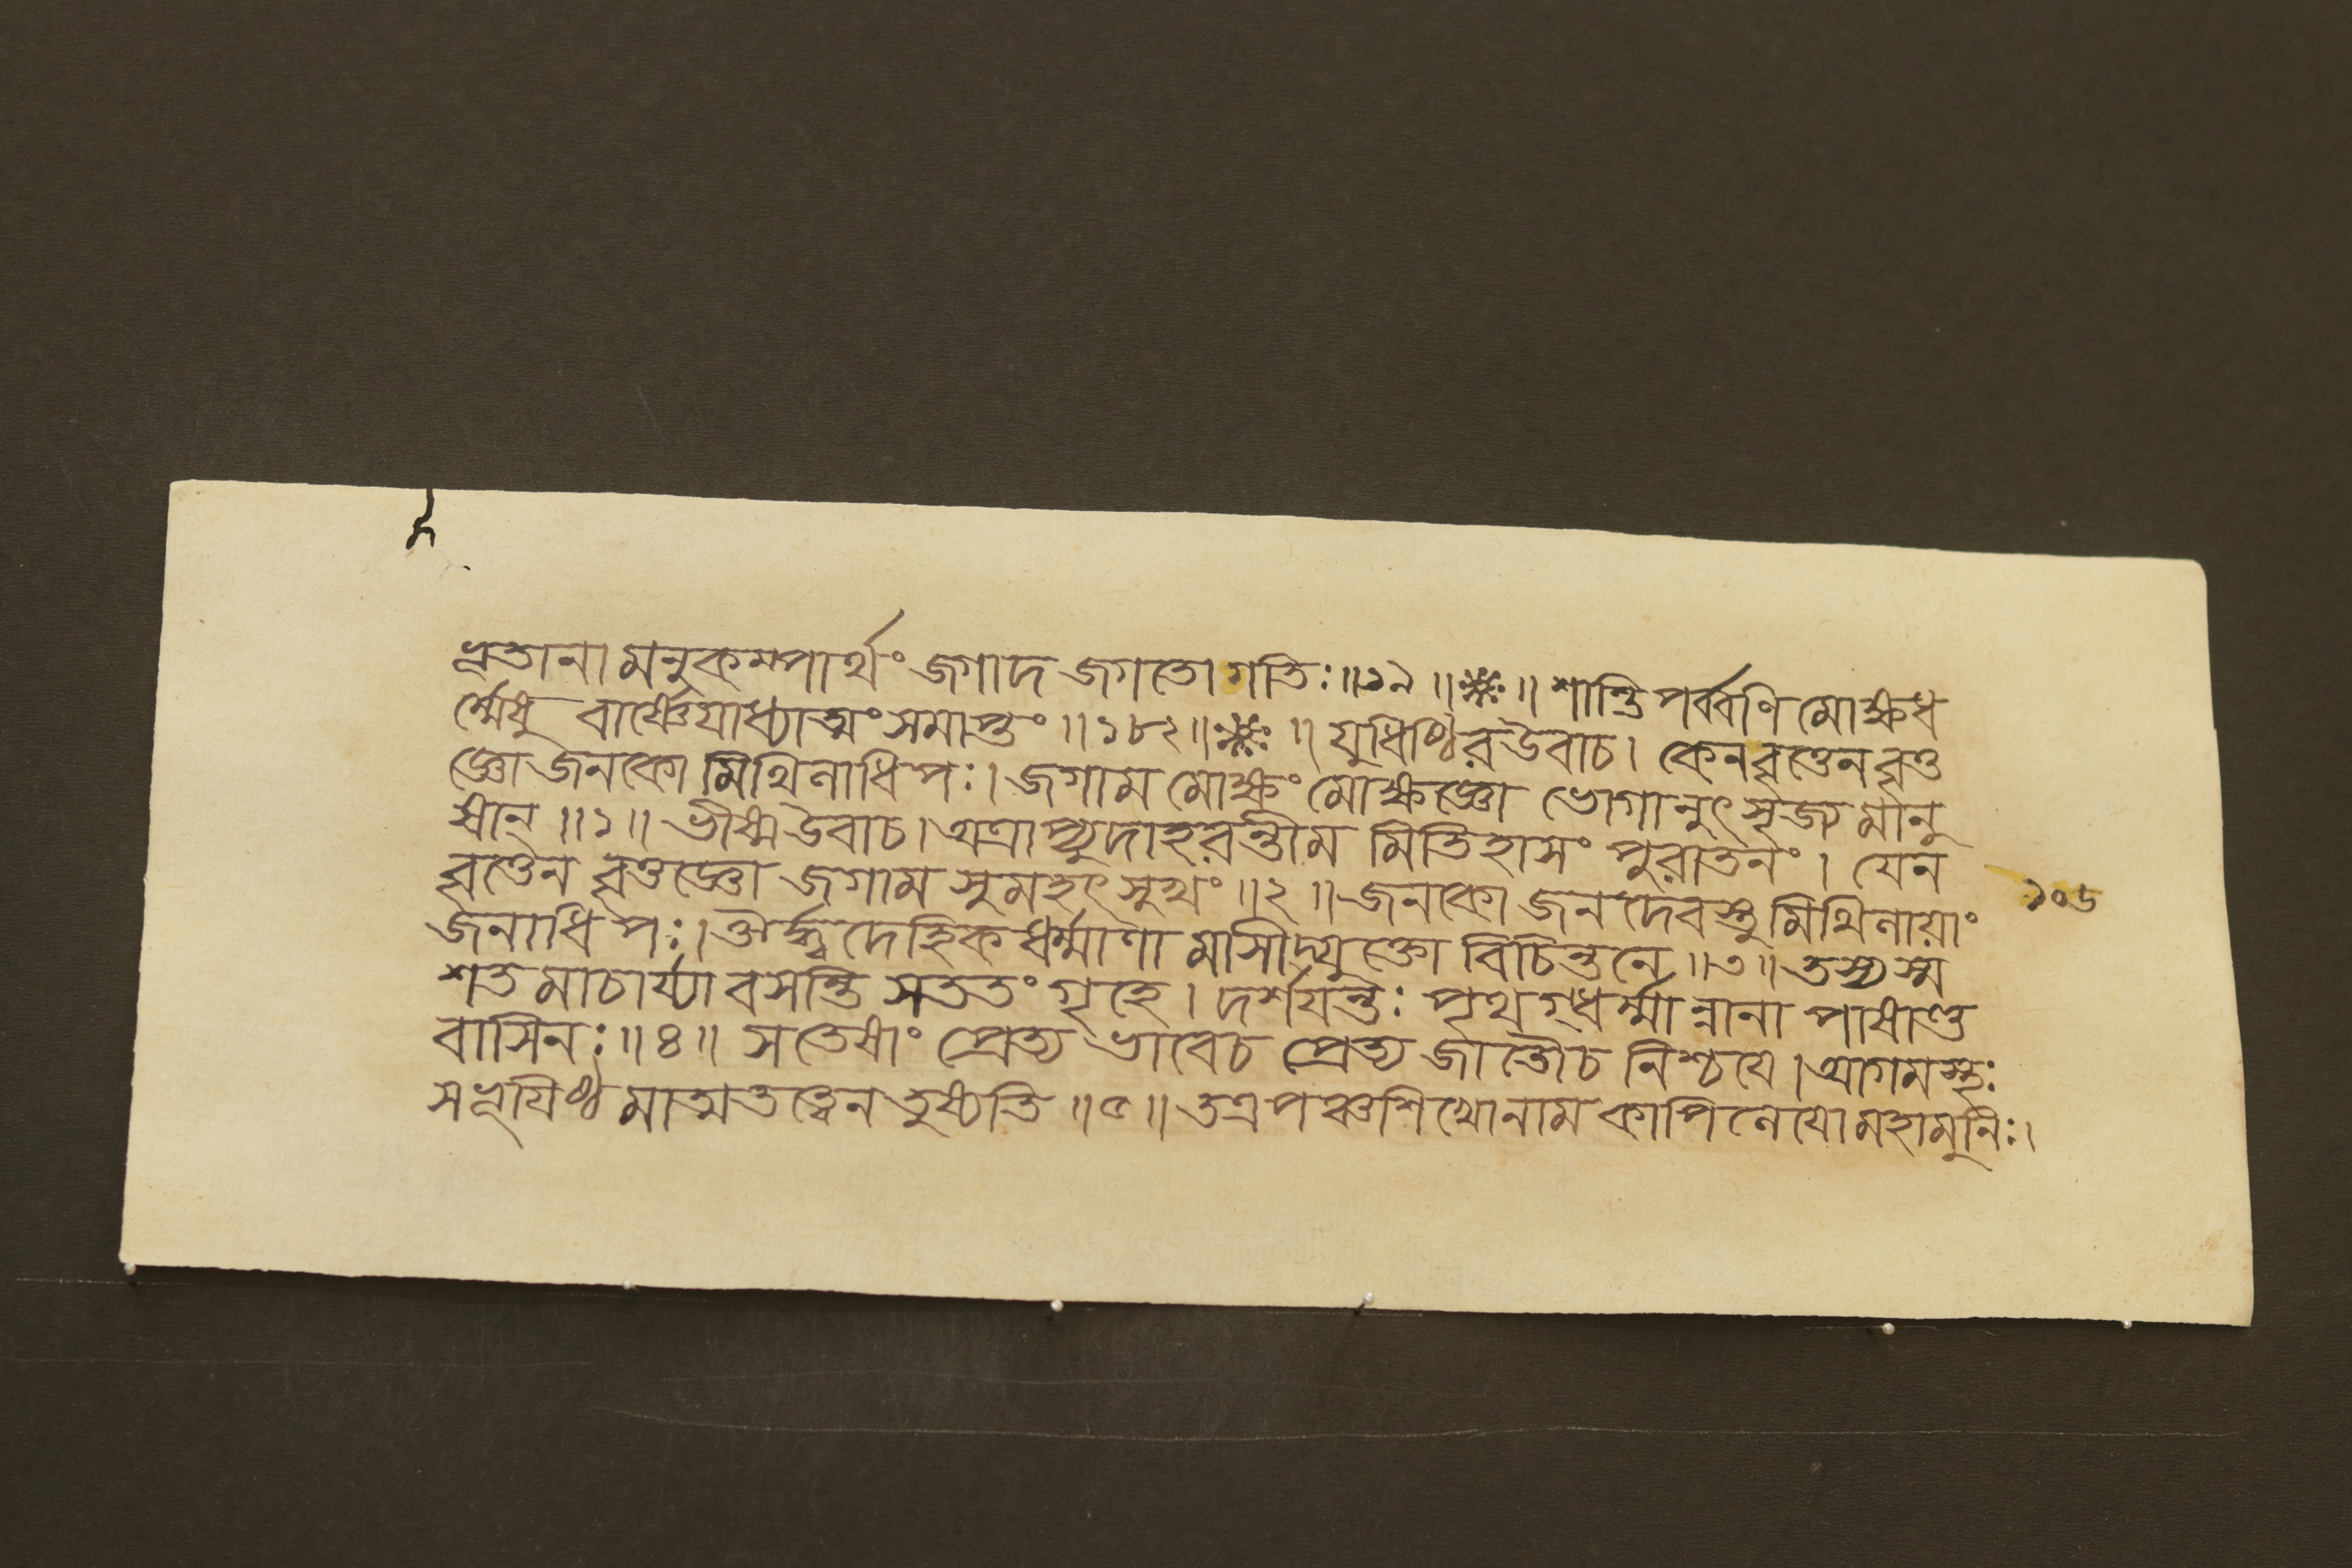 ভূতানামনুকম্পার্থং জগাদ জগতো গতিঃ॥১৯॥※॥ শান্তিপর্ব্বণি মোক্ষধ
র্ম্মেষু বার্ষ্ণেযাধ্যাত্মং সমাপ্তং॥১৮২॥※॥ যুধিষ্ঠির উবাচ। কেন বৃত্তেন বৃত্ত
জ্ঞো জনকো মিথিলাধিপঃ। জগাম মোক্ষং মোক্ষজ্ঞো ভোগানুৎসৃজ্য মানু
ষান্॥১॥ ভীষ্ম উবাচ। অত্রাপ্যুদাহরন্তীমমিতিহাসং পুরাতনং। যেন
বৃত্তেন বৃত্তজ্ঞো জগাম সুমহৎসুখং॥২॥ জনকো জনদেবস্তু মিথিলায়াং ১০৬
জনাধিপঃ। ঔর্দ্ধ্বদেহিকধর্ম্মাণামাসীদ্যুক্তো বিচিন্তনে॥৩॥ তস্য স্ম
শতমাচার্য্যা বসন্তি সততং গৃহে। দর্শযন্তঃ পৃথগ্ধর্ম্মান্নানাপাষাণ্ড
বাসিনঃ॥৪॥ স তেষাং প্রেত্যভাবে চ প্রেত্যজাতৌ চ নিশ্চযে। আগমস্থঃ
স ভূযিষ্ঠমাত্মতত্ত্বেন তুষ্যতি॥৫॥ তত্র পঞ্চশিখো নাম কাপিলেযো মহামুনিঃ।